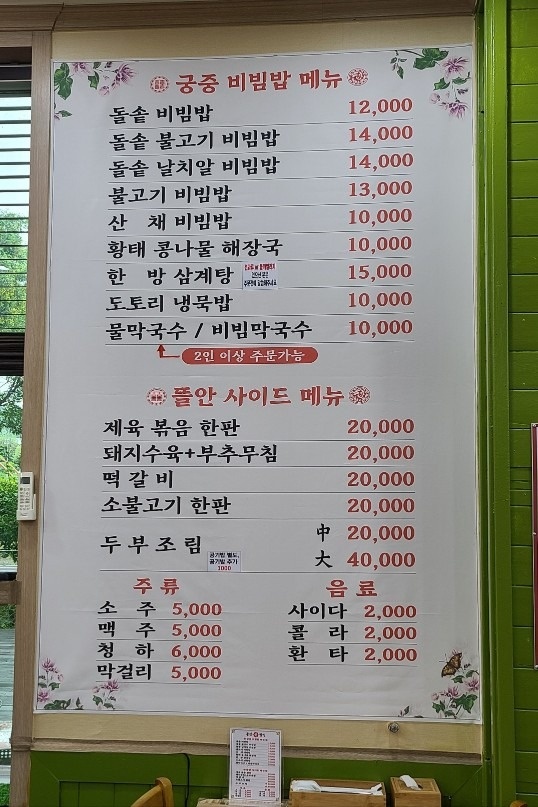 궁중 비빔밥 메뉴
돌솥 비빔밥 12,000
돌솥 불고기 비빔밥 14,000
돌솥 날치알 비빔밥 14,000
불고기 비빔밥 13,000
산 채 비빔밥 10,000
황태 콩나물 해장국 10,000
한 방 삼계탕 15,000
도토리 냉묵밥 10,000
물막국수 / 비빔막국수 10,000
2인 이상 주문가능
뜰안 사이드 메뉴
제육 볶음 한판 20,000
돼지수육+부추무침 20,000
떡 갈 비 20,000
소불고기 한판 20,000
두부조림 中 20,000
大 40,000
공기밥 별도,
공기밥 추가
1000
주 류
소 주 5,000
맥 주 5,000
청 하 6,000
막걸리 5,000
음 료
사이다 2,000
콜 라 2,000
환 타 2,000